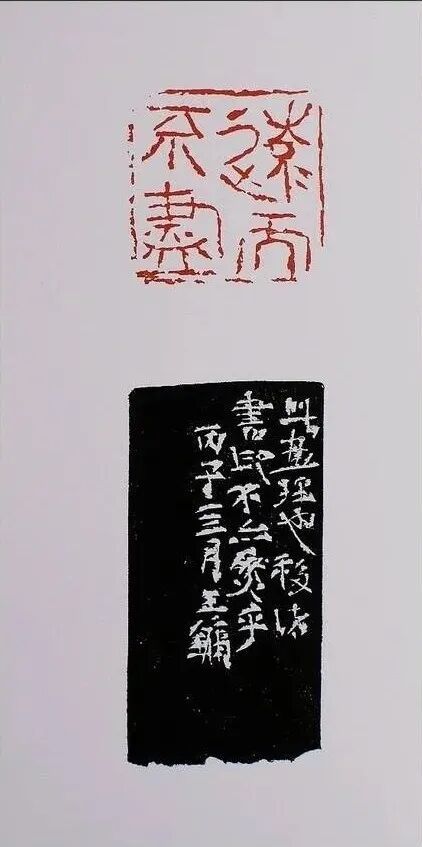 遠而
不盡
此畫理也移诸
書印不亦然乎
丙子三月王鏞